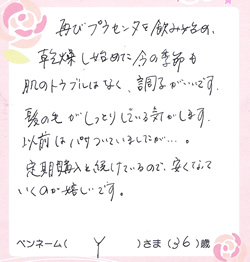 再びプラセンタを飲み始め、
乾燥し始めた今の季節も
肌のトラブルはなく、調子がいいです。
髪の毛がしっとりしている気がします。
以前はパサついていましたが…。
定期購入と続けているので、安くなって
いくのが嬉しいです。
ペンネーム( Y )さま(36)歳